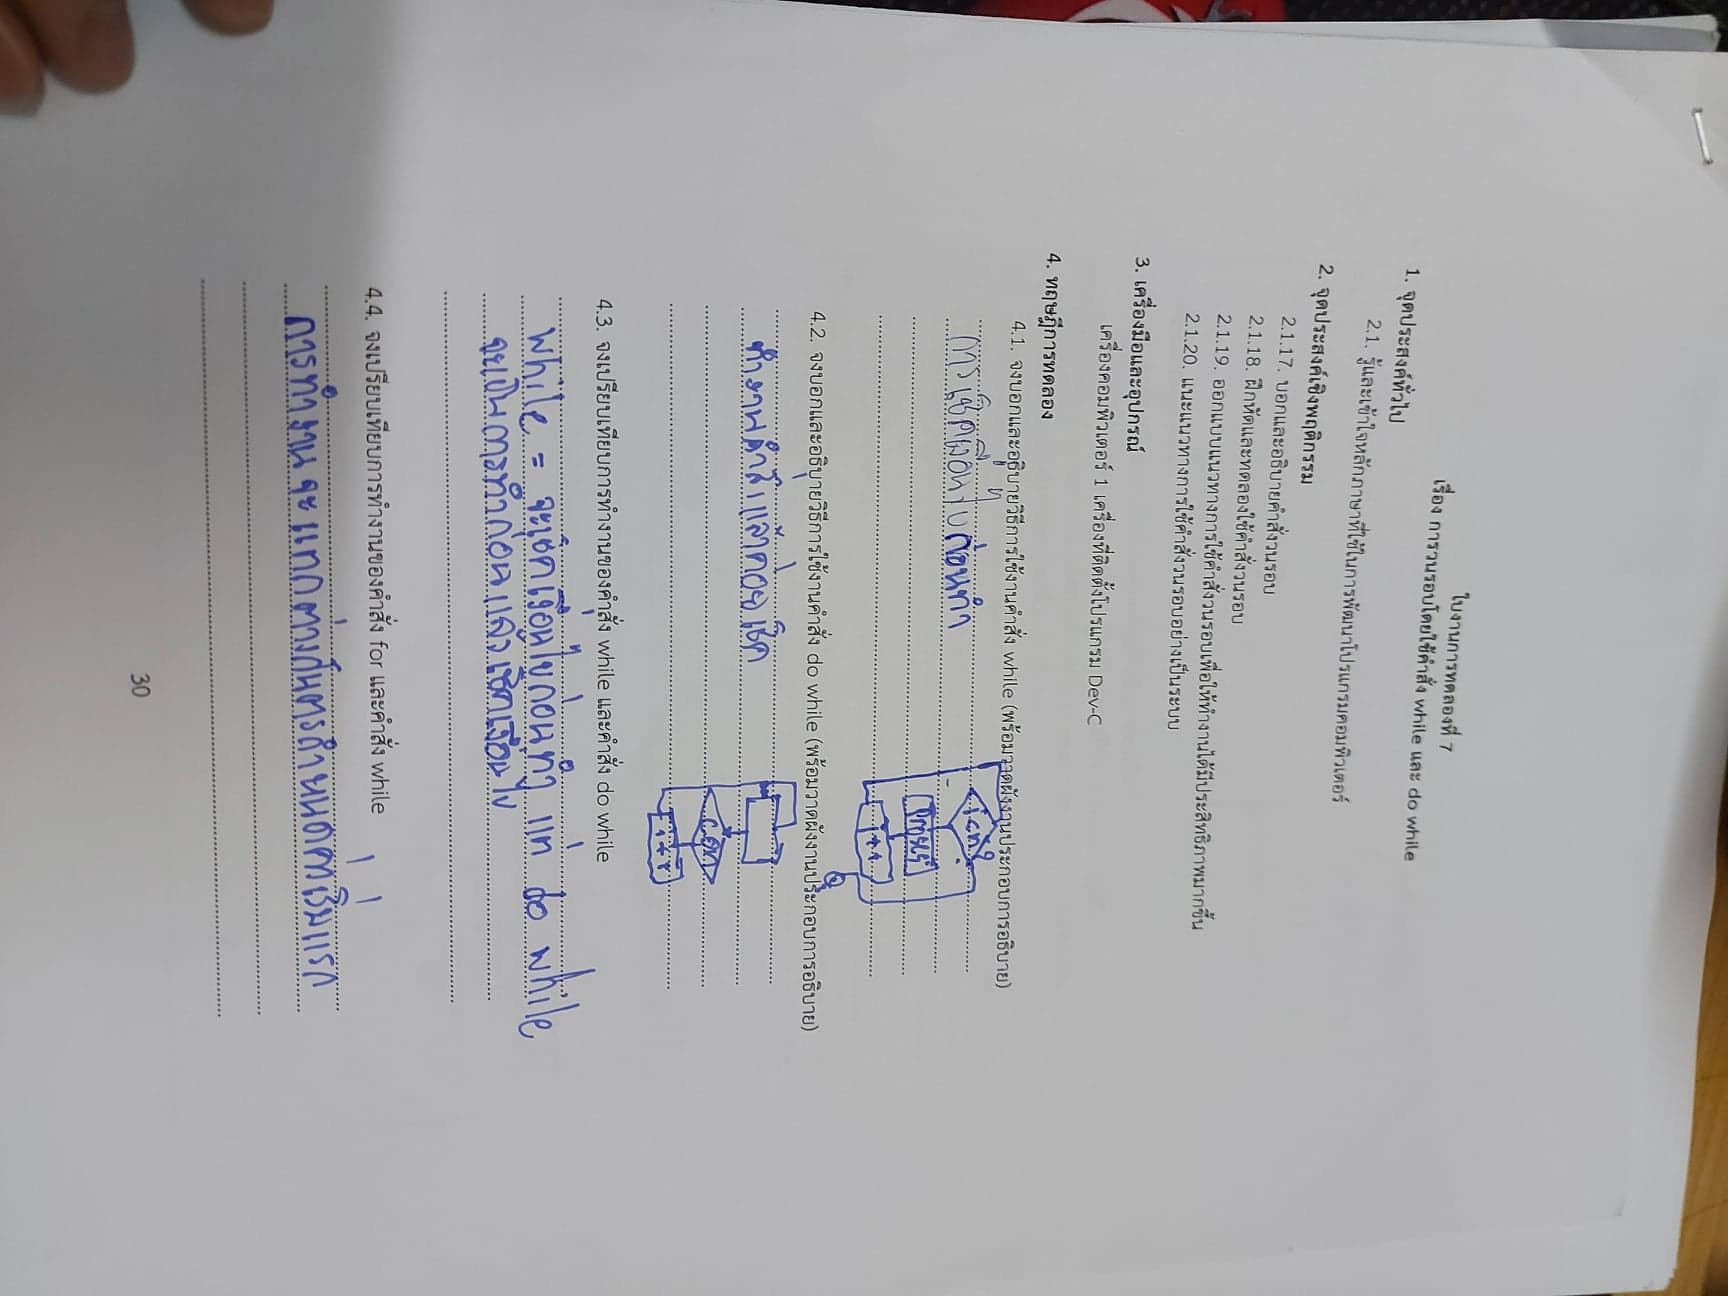 ใบงานการทดลองที่ 7
เรื่อง การวนรอบโดยใช้คำสั่ง while และ do while
1. จุดประสงค์ทั่วไป
2.1. รู้และเข้าใจหลักภาษาที่ใช้ในการพัฒนาโปรแกรมคอมพิวเตอร์
2. จุดประสงค์เชิงพฤติกรรม
2.1.17. บอกและอธิบายคำสั่งวนรอบ
2.1.18. ฝึกหัดและทดลองใช้คำสั่งวนรอบ
2.1.19. ออกแบบแนวทางการใช้คำสั่งวนรอบเพื่อให้ทำงานได้มีประสิทธิภาพมากขึ้น
2.1.20. แนะแนวทางการใช้คำสั่งวนรอบอย่างเป็นระบบ
3. เครื่องมือและอุปกรณ์
เครื่องคอมพิวเตอร์ 1 เครื่องที่ติดตั้งโปรแกรม Dev-C
4. ทฤษฎีการทดลอง
4.1. จงบอกและอธิบายวิธีการใช้งานคำสั่ง while (พร้อมวาดผังงานประกอบการอธิบาย)
ก่อนทำ
i++
4.2. จงบอกและอธิบายวิธีการใช้งานคำสั่ง do while (พร้อมวาดผังงานประกอบการอธิบาย)
ทำงานคำสั่งแล้วค่อยเช็ค
con
i++
4.3. จงเปรียบเทียบการทำงานของคำสั่ง while และคำสั่ง do while
While = จะเช็คเงื่อนไขก่อนทำ แต่ do while
จะเป็นการทำก่อนแล้วเช็คเงื่อนไข
4.4. จงเปรียบเทียบการทำงานของคำสั่ง for และคำสั่ง while
การทำงานจะแตกต่างกันตรงกำหนดค่าเริ่มแรก
30